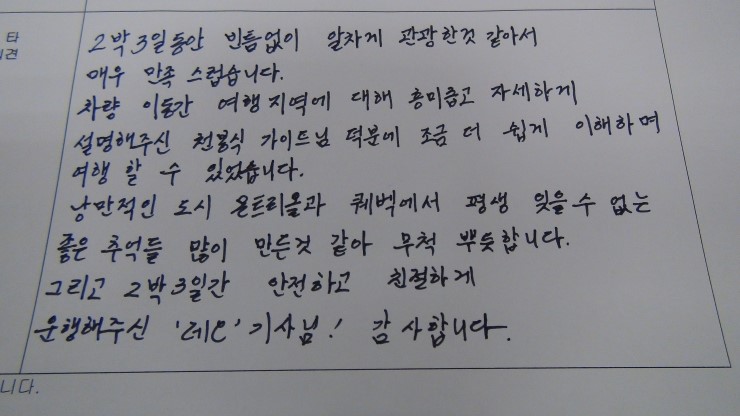 타
의견
2박3일동안 빈틈없이 알차게 관광한것 같아서
매우 만족스럽습니다.
차량 이동간 여행지역에 대해 흥미롭고 자세하게
설명해주신 천용식 가이드님 덕분에 조금 더 쉽게 이해하며
여행 할 수 있었습니다.
낭만적인 도시 몬트리올과 퀘벡에서 평생 잊을수 없는
좋은 추억들 많이 만든것 같아 무척 뿌듯합니다.
그리고 2박3일간 안전하고 친절하게
운행해주신 '레오' 기사님! 감사합니다.
니다.